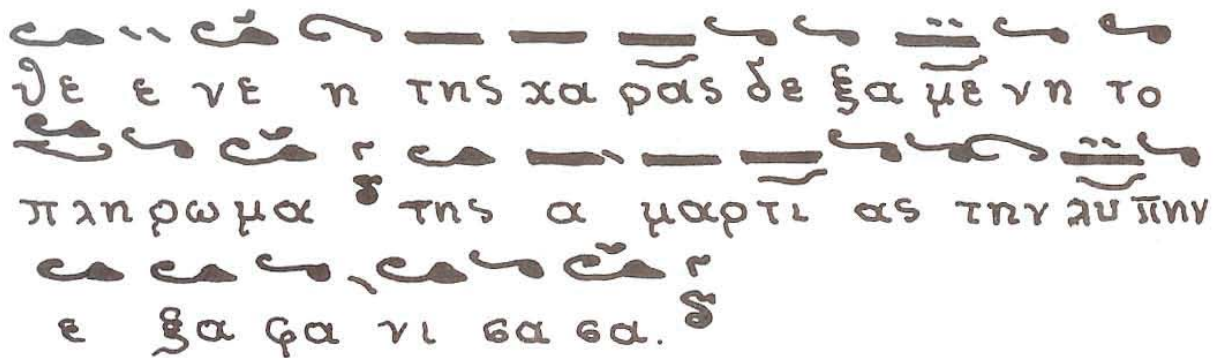 θε ε νε η της χα ρας δε ξα με νη το
πλη ρω μα δ της α μαρ τι ας την λυ πην
ε ξα φα νι σα σα. δ